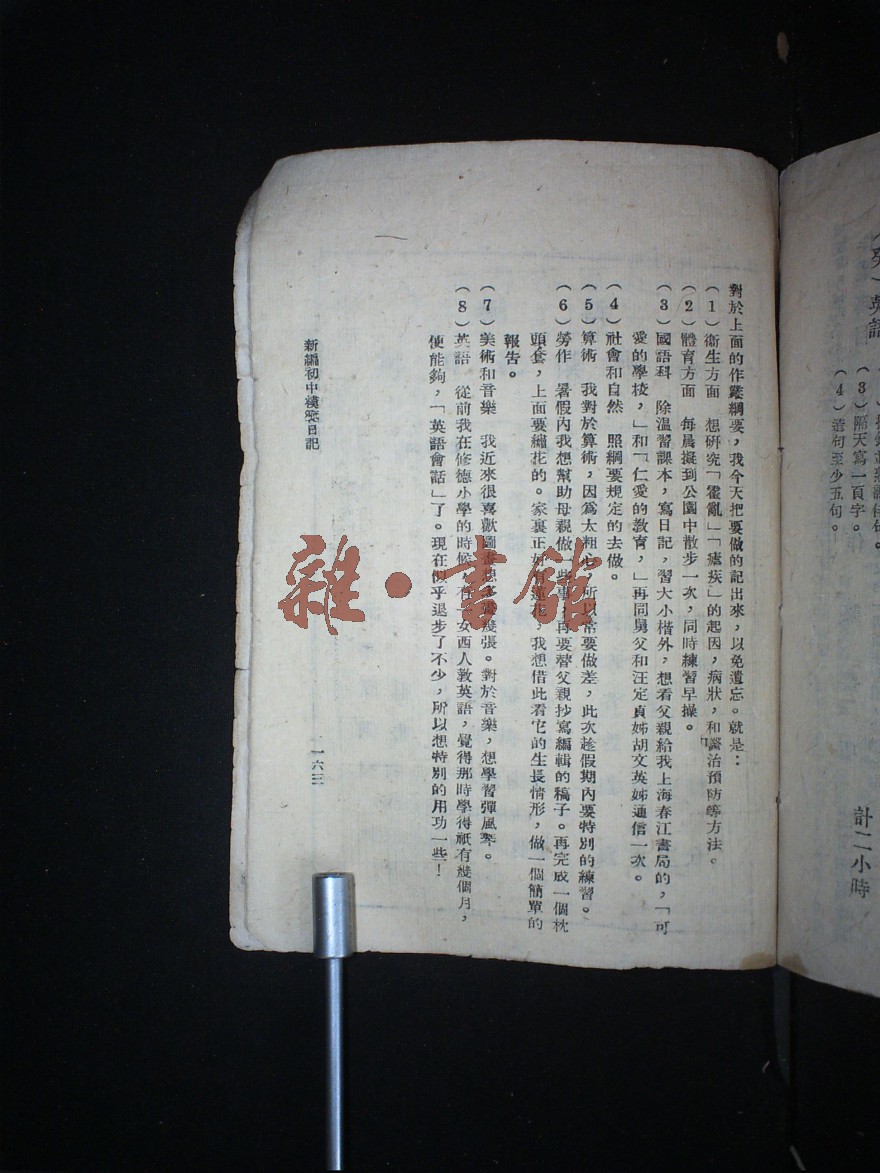 (癸)英語
(3)隔天寫一頁字。
(4)造句至少五句。
計二小時
對於上面的作業綱要,我今天把要做的記出來,以免遺忘。就是:
(1)衛生方面 想研究「霍亂」「瘧疾」的起因,病狀,和醫治預防等方法。
(2)體育方面 每晨擬到公園中散步一次,同時練習早操。
(3)國語科 除溫習課本,寫日記,習大小楷外,想看父親給我上海春江書局的,「可
愛的學校,」和「仁愛的教育,」再同舅父和汪定貞姊胡文英姊通信一次。
(4)社會和自然 照綱要規定的去做。
(5)算術 我對於算術,因爲太粗心,所以常要做差,此次趁假期內要特別的練習。
(6)勞作 暑假內我想幫助母親做一些事,再要替父親抄寫編輯的稿子。再完成一個枕
頭套,上面要繡花的。家裏正好有蓮花,我想借此看它的生長情形,做一個簡單的
報告。
(7)美術和音樂 我近來很喜歡圖畫想多畫幾張。對於音樂,想學習彈風琴。
(8)英語 從前我在修德小學的時候,有一女西人敎英語,覺得那時學得祇有幾個月,
便能夠,「英語會話」了。現在似乎退步了不少,所以想特別的用功一些!
新編初中模範日記
一六三
雜·書館